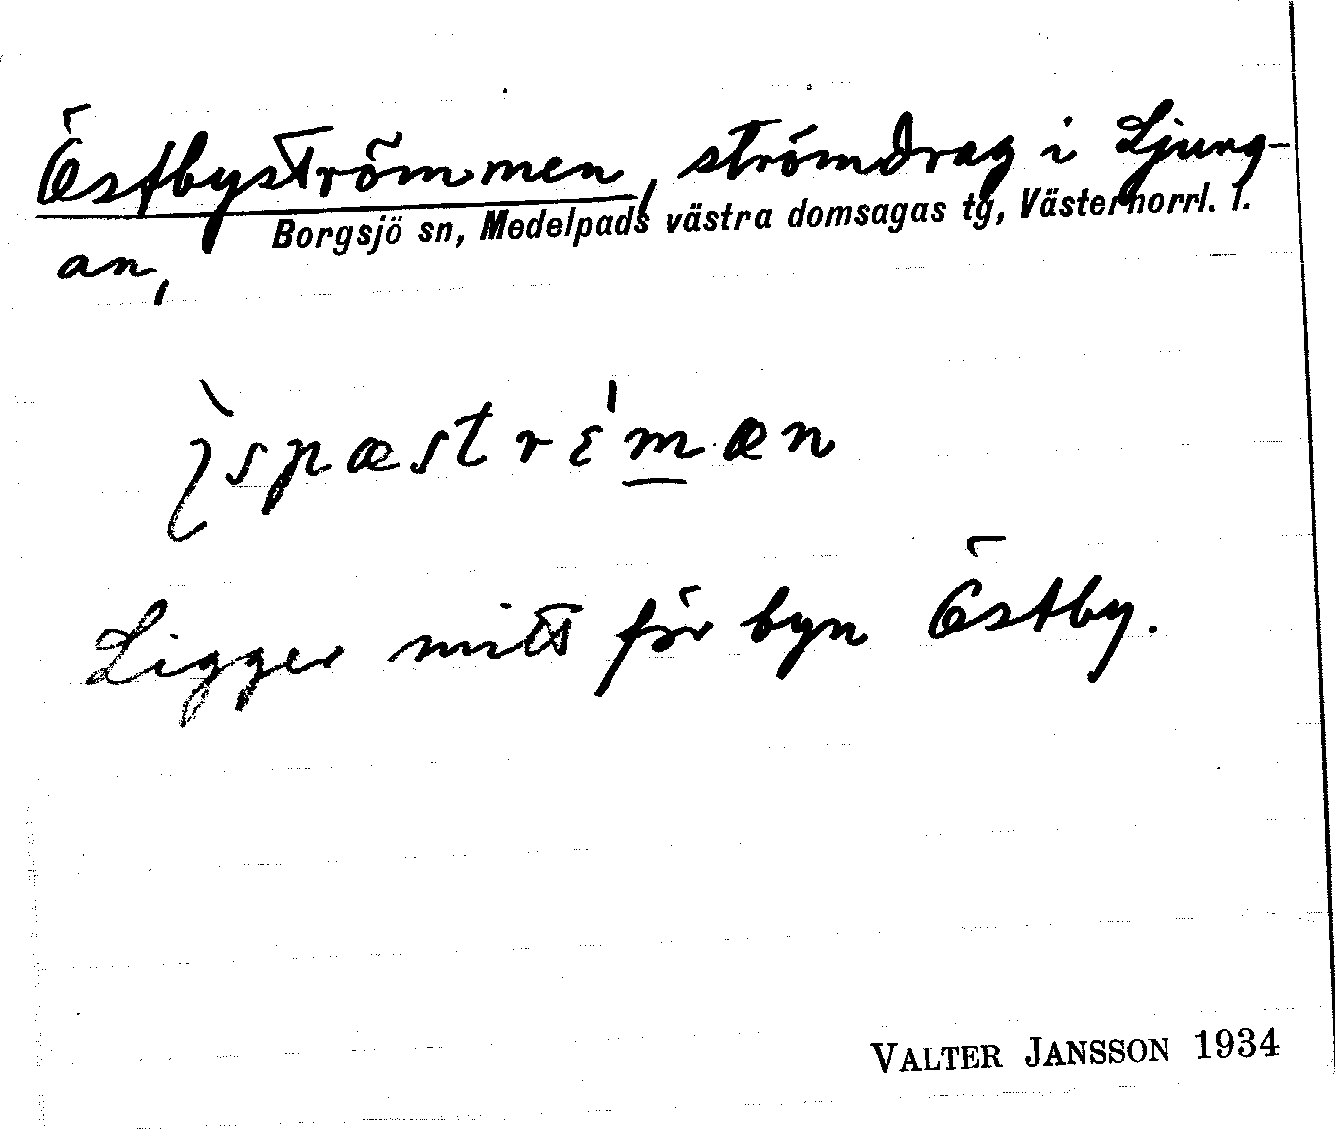 Östbyströmmen, strömdrag i Ljung-
Borgsjö sn, Medelpads västra domsagas tg, Västernorrl. l.
an,
Ligger mitt för byn Östby.
VALTER JANSSON 1934